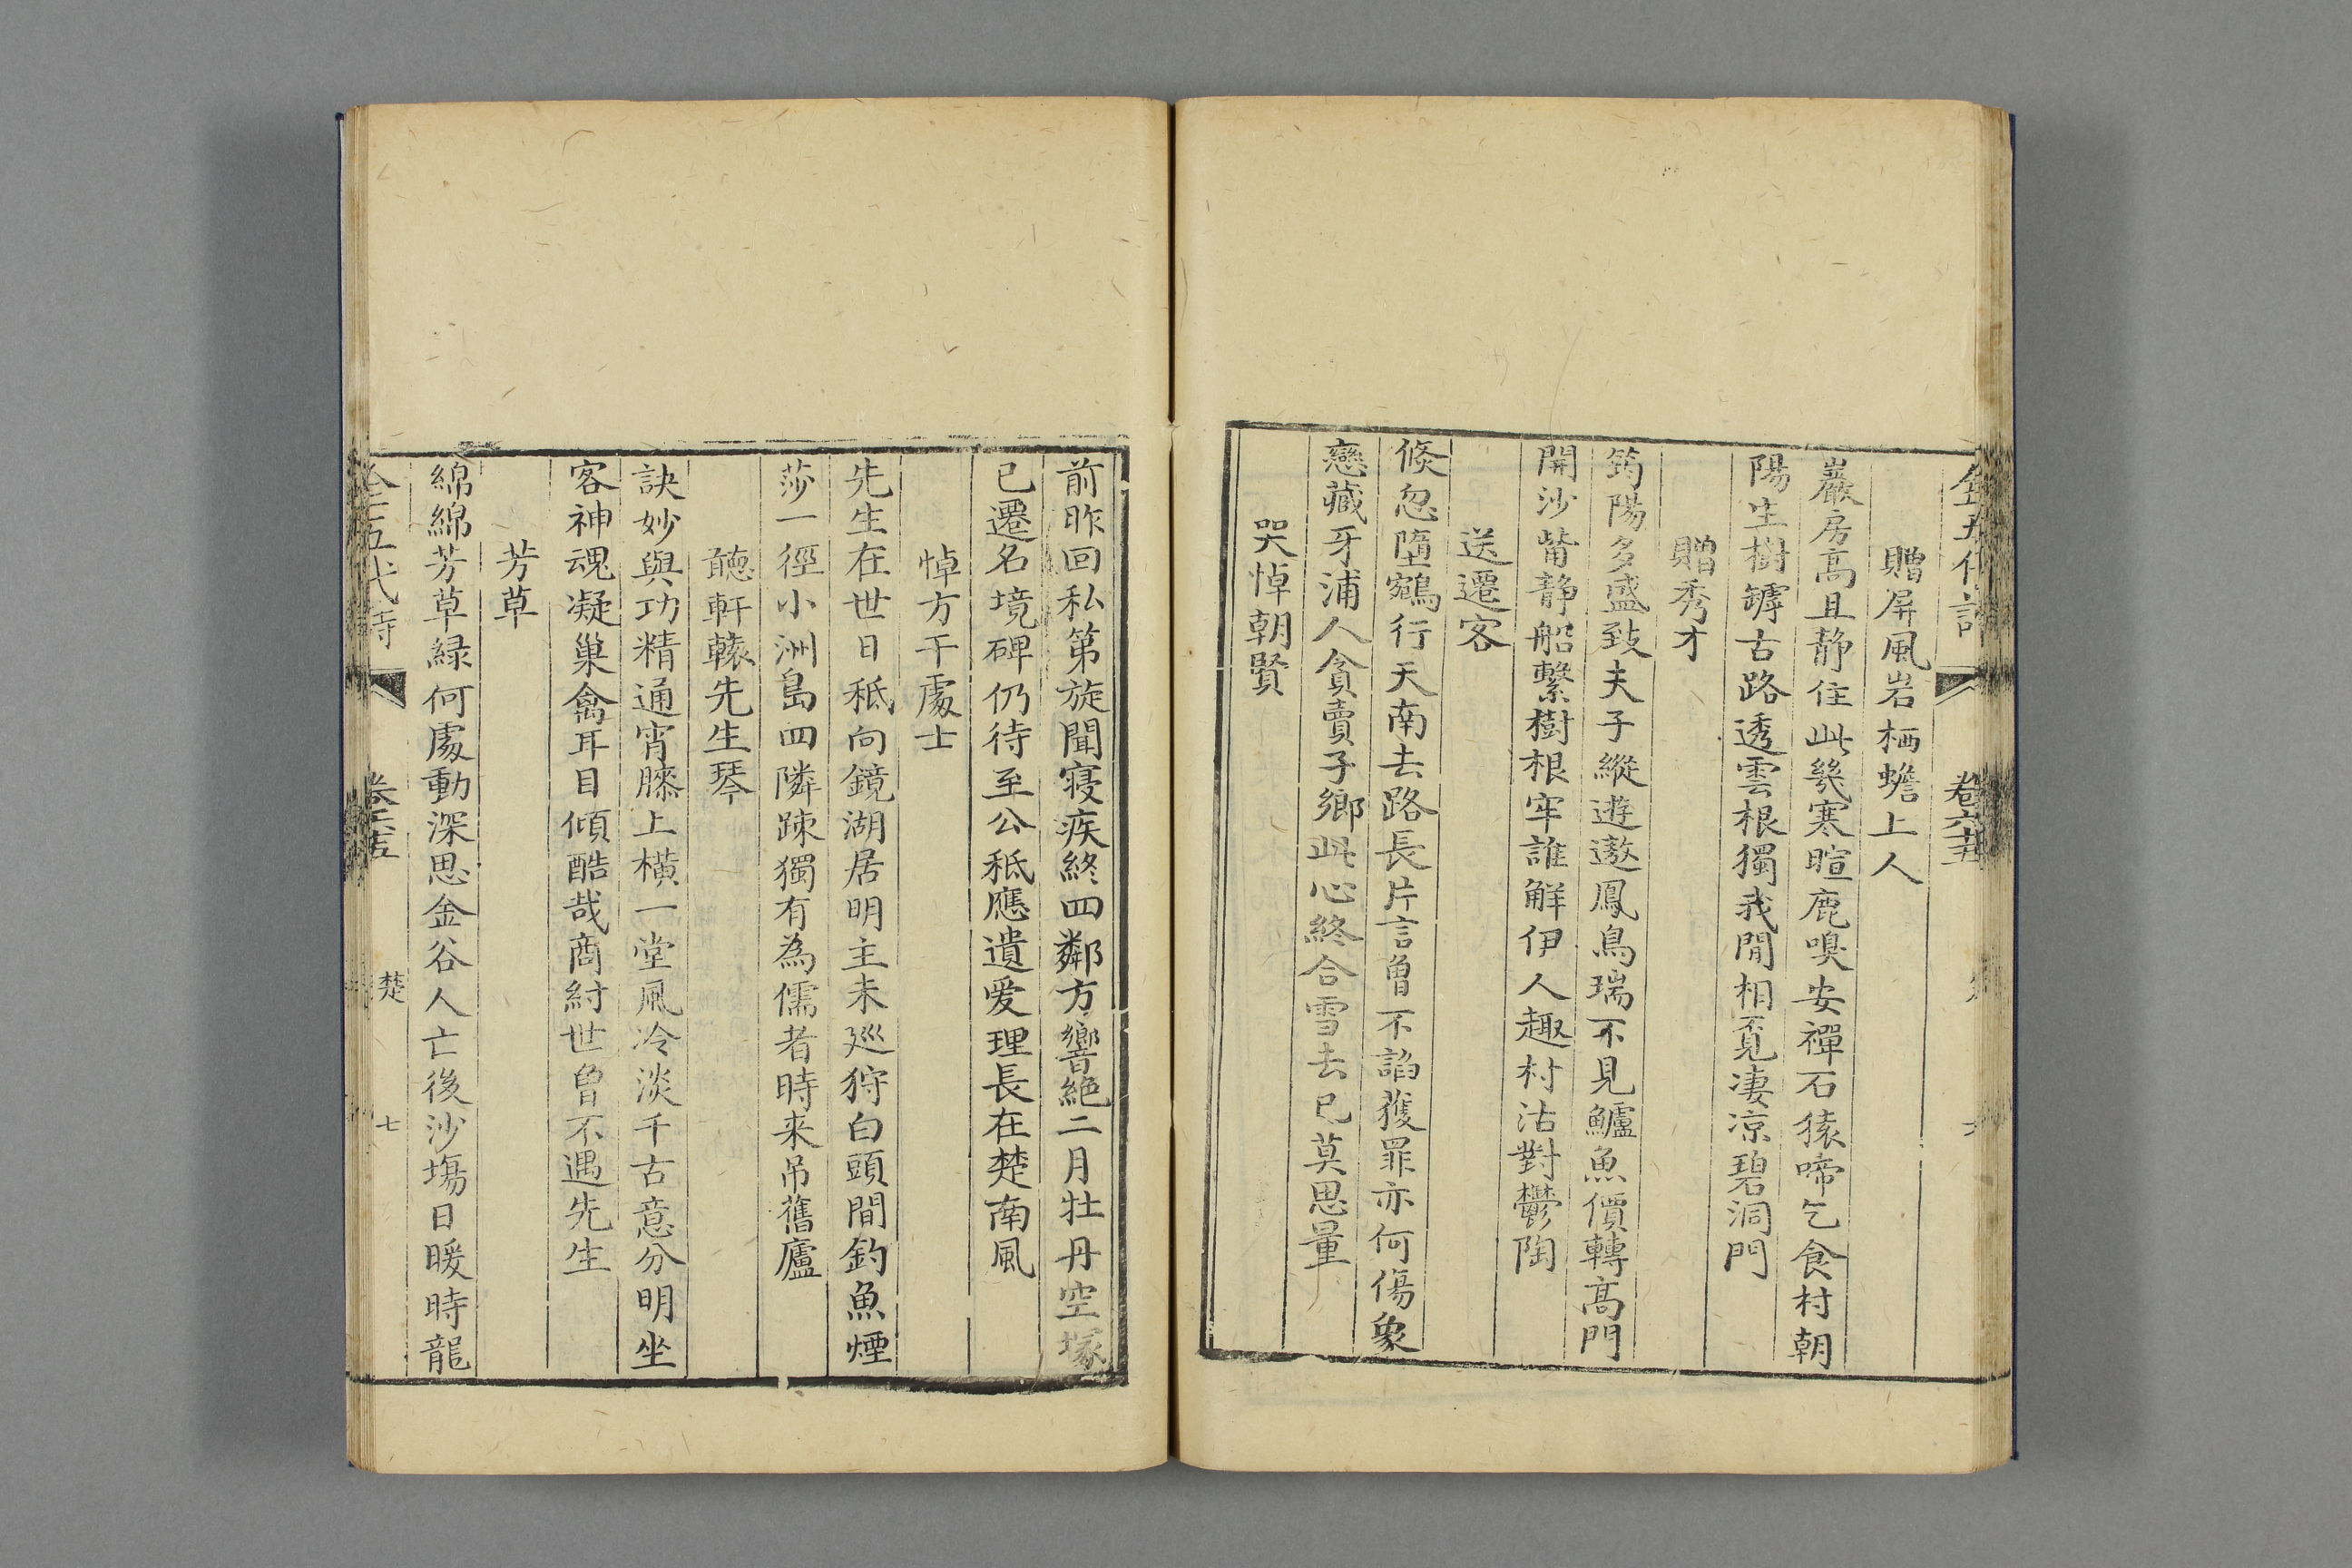 全五代詩 卷六十五
贈屏風岩栖蟾上人
巖房高且静住此幾寒暄鹿嗅安禪石猿啼乞食村朝
陽生樹罅古路透雲根獨我閒相覓凄凉碧洞門
贈秀才
筠陽多盛致夫子縱遊遨鳳鳥瑞不見鱸魚價轉高門
開沙觜静船繫樹根牢誰解伊人趣村沽對鬱陶
送遷客
倏忽墮鵷行天南去路長片言曾不諂獲罪亦何傷象
戀藏牙浦人貪賣子鄉此心終合雪去已莫思量
哭悼朝賢
前昨回私第旋聞寢疾終四鄰方響絶二月牡丹空塚
已遷名境碑仍待至公秪應遺愛理長在楚南風
悼方干處士
先生在世日秪向鏡湖居明主未巡狩白頭閒釣魚煙
莎一徑小洲島四隣踈獨有為儒者時来吊舊廬
聽軒轅先生琴
訣妙與功精通宵膝上横一堂風冷淡千古意分明坐
客神魂凝巢禽耳目傾酷哉商紂世曾不遇先生
芳草
綿綿芳草緑何處動深思金谷人亡後沙塲日暖時龍
全五代詩 卷六十五 楚 七